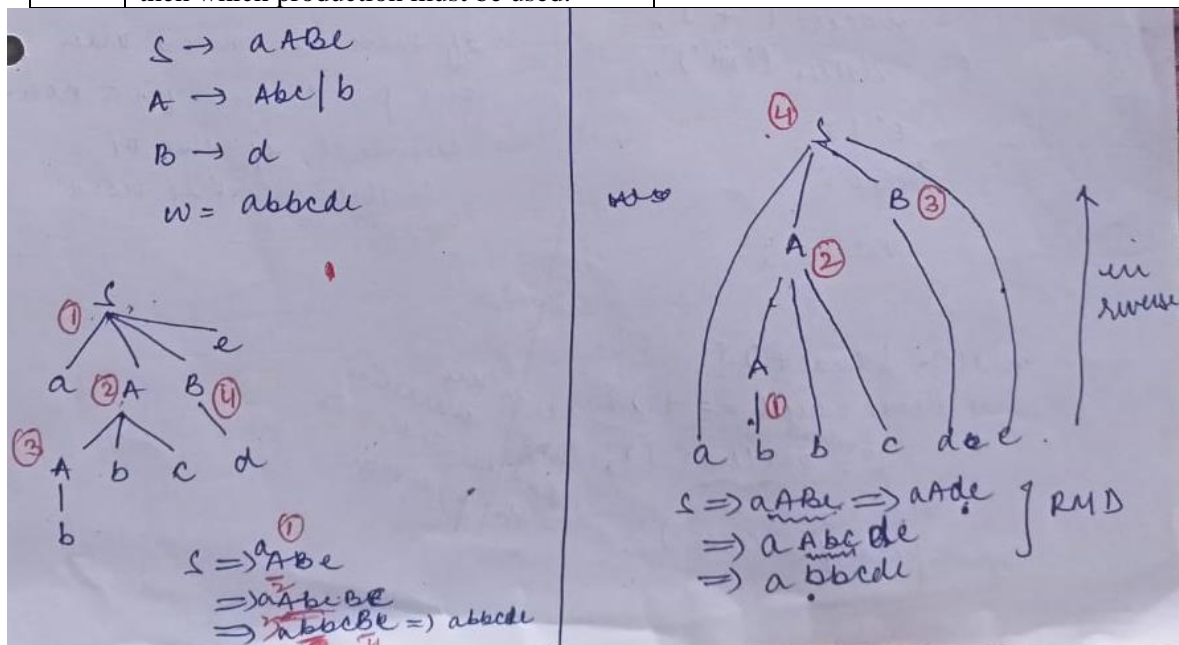 then which production must be used.
S → aABe
A → Abc | b
B → d
w = abbcde
① S
a ② A B ④ e
③ A b c d
b
①
S ⇒ aABe
2
⇒ aAbcBe
⇒ 3 abbcBe ⇒ abbcde
4
④ S
B ③
A ②
A
①
a b b c d e
in
reverse
S ⇒ aABe ⇒ aAde
⇒ a Abc de
⇒ a bbcde
RMD